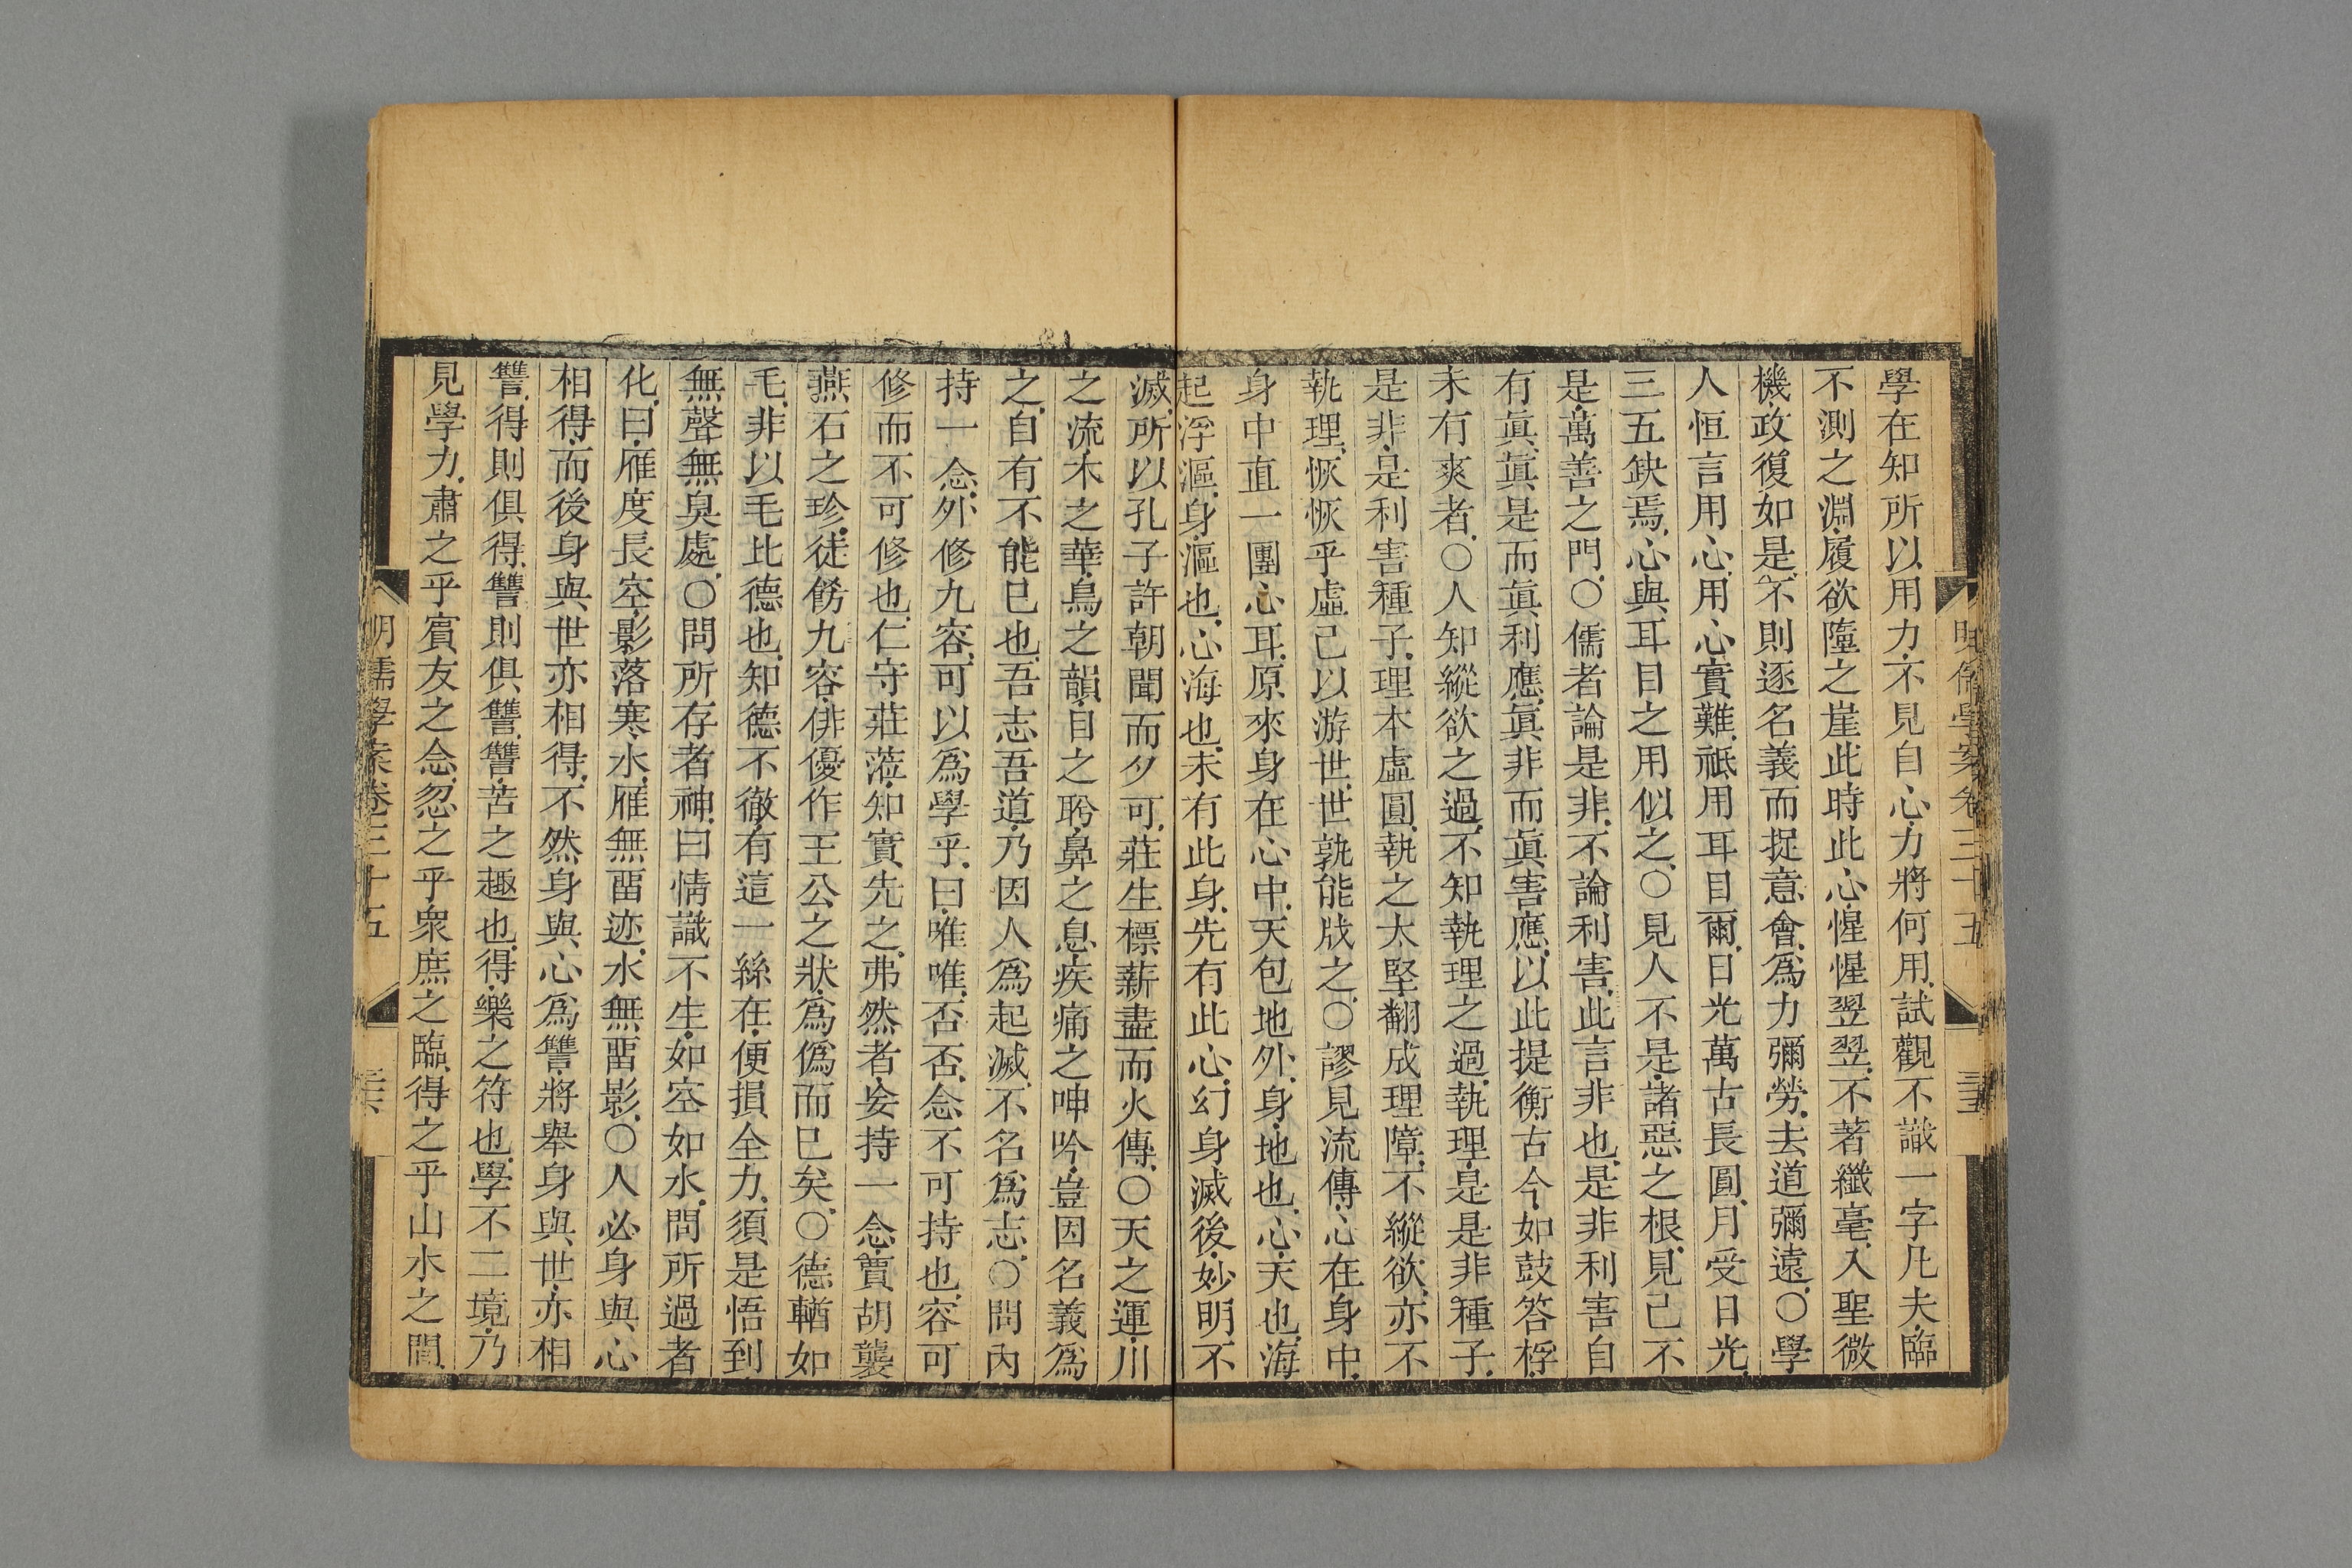 明儒學案卷三十五
三五
學在知所以用力不見自心力將何用試觀不識一字凡夫臨
不測之淵履欲墮之崖此時此心惺惺翌翌不著纖毫入聖微
機政復如是不則逐名義而捉意會爲力彌勞去道彌遠○學
人恒言用心用心實難祗用耳目爾日光萬古長圓月受日光
三五缺焉心與耳目之用似之○見人不是諸惡之根見己不
是萬善之門○儒者論是非不論利害此言非也是非利害自
有眞眞是而眞利應眞非而眞害應以此提衡古今如鼓答桴
未有爽者○人知縱欲之過不知執理之過執理是是非種子
是非是利害種子理本虛圓執之太堅翻成理障不縱欲亦不
執理恢恢乎虛己以游世世孰能戕之○謬見流傳心在身中
身中直一團心耳原來身在心中天包地外身地也心天也海
起浮漚身漚也心海也未有此身先有此心幻身滅後妙明不
滅所以孔子許朝聞而夕可莊生標薪盡而火傳○天之運川
之流木之華鳥之韻目之盻鼻之息疾痛之呻吟豈因名義爲
之自有不能已也吾志吾道乃因人爲起滅不名爲志○問內
持一念外修九容可以爲學乎曰唯唯否否念不可持也容可
修而不可修也仁守莊蒞知實先之弗然者妄持一念賈胡襲
燕石之珍徒飾九容俳優作王公之狀爲僞而已矣○德輶如
毛非以毛比德也知德不徹有這一絲在便損全力須是悟到
無聲無臭處○問所存者神曰情識不生如空如水問所過者
化曰雁度長空影落寒水雁無畱迹水無畱影○人必身與心
相得而後身與世亦相得不然身與心爲讐將舉身與世亦相
讐得則俱得讐則俱讐讐苦之趣也得樂之符也學不二境乃
見學力肅之乎賓友之念忽之乎衆庶之臨得之乎山水之間
明儒學案卷三十五
三六